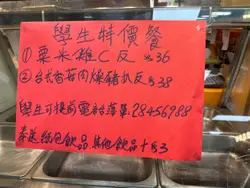 學生特價餐
①粟米雞C反 $36
②台式香菇肉燥豬扒反 $38
學生可提前電話落單.28456988
奉送紙包飲品,其他飲品十$3